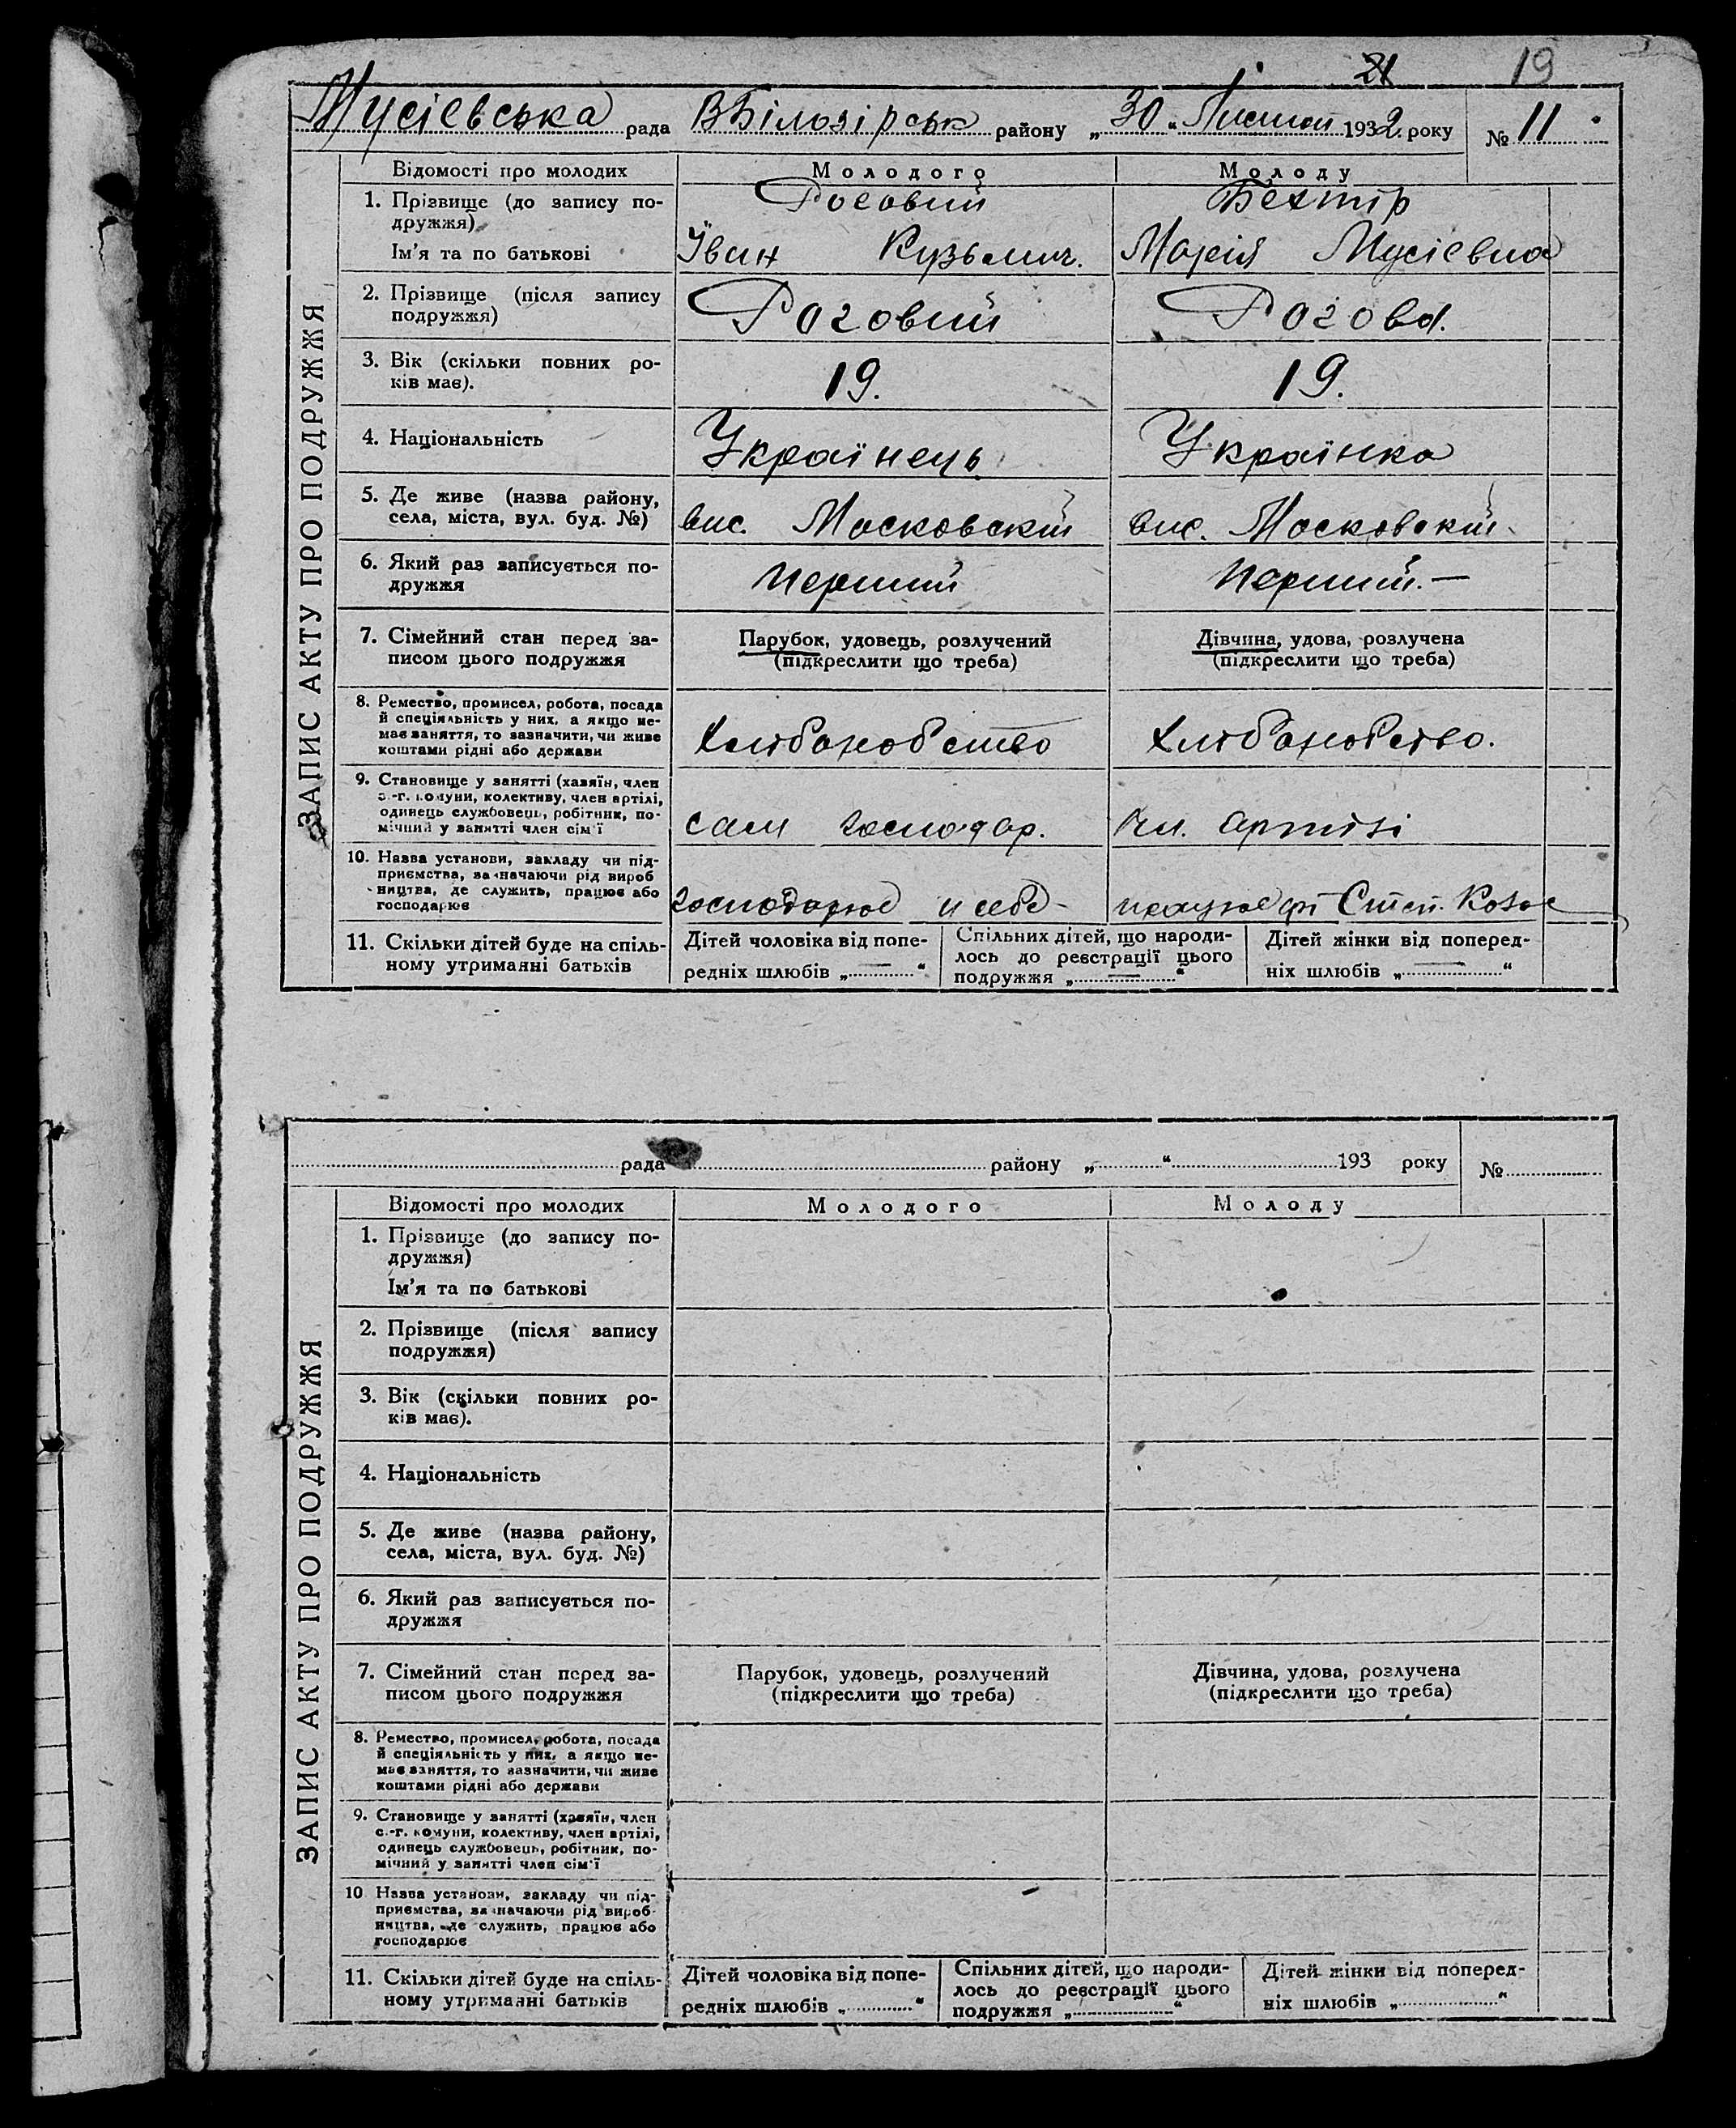 21 19
Мусієвська рада ВБілозірськ району „30“ Листоп 1932 року № 11
ЗАПИС АКТУ ПРО ПОДРУЖЖЯ
Відомості про молодих Молодого Молоду
1. Прізвище (до запису по- Роговий Бехтір
дружжя)
Ім'я та по батькові Іван Кузьмич. Марія Мусієвна
2. Прізвище (після запису Роговий Рогова.
подружжя)
3. Вік (скільки повних ро- 19. 19.
ків має).
4. Національність Українець Українка
5. Де живе (назва району,
села, міста, вул. буд. №) вис. Московский вис. Московский
6. Який раз записується по- перший перший. —
дружжя
7. Сімейний стан перед за- Парубок, удовець, розлучений Дівчина, удова, розлучена
писом цього подружжя (підкреслити що треба) (підкреслити що треба)
8. Ремество, промисел, робота, посада
й спеціяльність у них, а якщо не-
має заняття, то зазначити, чи живе
коштами рідні або держави Хлібопобство Хлібопобство.
9. Становище у занятті (хазяїн, член
с.-г. комуни, колективу, член артілі,
одинець службовець, робітник, по- сам господар. чл. артілі
мічний у занятті член сім'ї
10. Назва установи, закладу чи під-
приємства, зазначаючи рід вироб-
ництва, де служить, працює або господарює у себе - працює Степ.
господарює
11. Скільки дітей буде на спіль- Дітей чоловіка від попе- Спільних дітей, що народи- Дітей жінки від поперед-
ному утриманні батьків редніх шлюбів „—“ лось до реєстрації цього ніх шлюбів „—“
подружжя „—“
рада району „ “ 193 року №
ЗАПИС АКТУ ПРО ПОДРУЖЖЯ
Відомості про молодих Молодого Молоду
1. Прізвище (до запису по-
дружжя)
Ім'я та по батькові
2. Прізвище (після запису
подружжя)
3. Вік (скільки повних ро-
ків має).
4. Національність
5. Де живе (назва району,
села, міста, вул. буд. №)
6. Який раз записується по-
дружжя
7. Сімейний стан перед за- Парубок, удовець, розлучений Дівчина, удова, розлучена
писом цього подружжя (підкреслити що треба) (підкреслити що треба)
8. Ремество, промисел, робота, посада
й спеціяльність у них, а якщо не-
має заняття, то зазначити, чи живе
коштами рідні або держави
9. Становище у занятті (хазяїн, член
с.-г. комуни, колективу, член артілі,
одинець службовець, робітник, по-
мічний у занятті член сім'ї
10. Назва установи, закладу чи під-
приємства, зазначаючи рід вироб-
ництва, де служить, працює або
господарює
11. Скільки дітей буде на спіль- Дітей чоловіка від попе- Спільних дітей, що народи- Дітей жінки від поперед-
ному утриманні батьків редніх шлюбів „ “ лось до реєстрації цього ніх шлюбів „ “
подружжя „ “